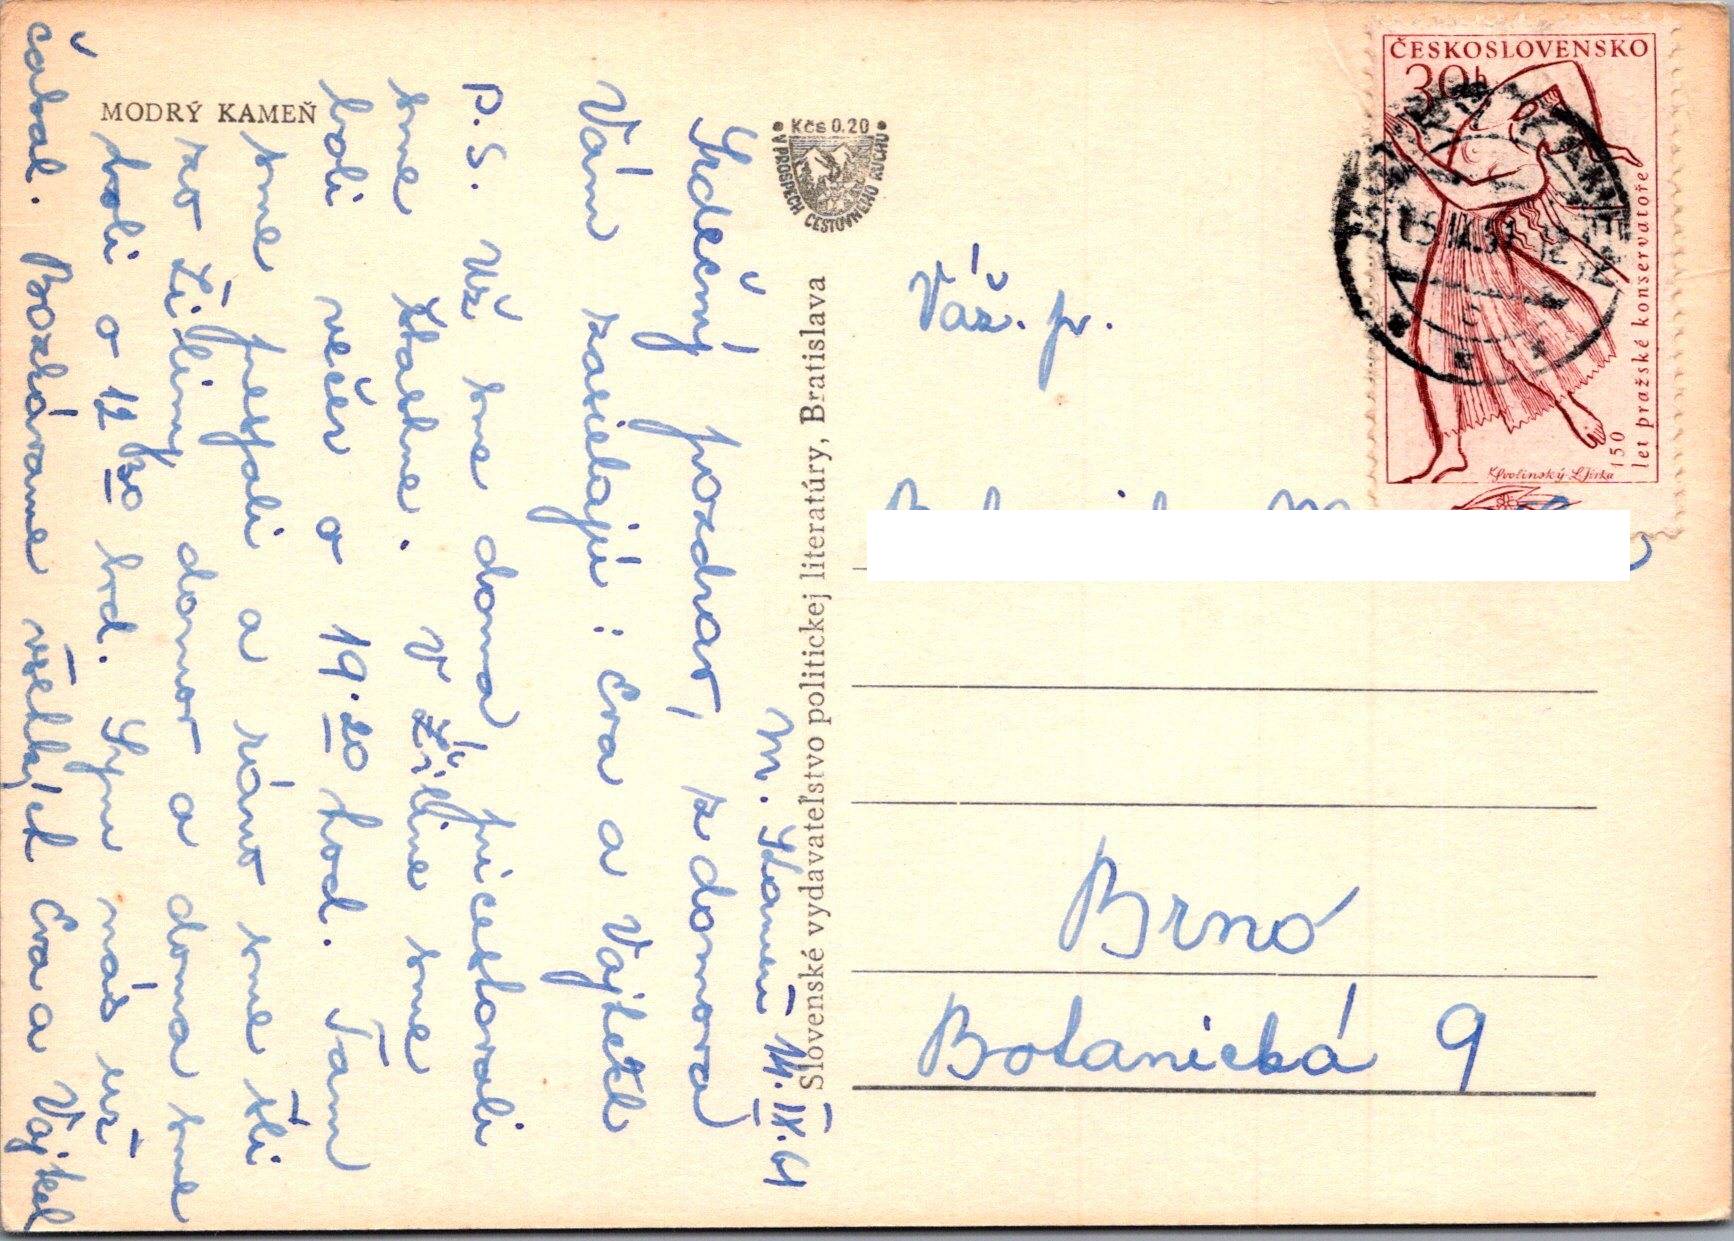 MODRÝ KAMEŇ
Kčs 0.20
V PROSPECH CESTOVNÉHO RUCHU
Slovenské vydavateľstvo politickej literatúry, Bratislava
ČESKOSLOVENSKO
30h
150
let pražské konservatoře
M. Kameň 14. IX. 61
Srdečný pozdrav, z domova
Vám zasielajú: Eva a Vojtekl
P. S. Už sme doma pricestovali
sme šťastne. V Žiline sme
boli večer o 19.20 hod. Tam
sme prespali a ráno sme šli
zo Žiliny domov a doma sme
boli o 12 30 hod. Synu nás už
čakal. Bozkávame všetkých Eva a Vojtekl
Váž. p.
Brno
Botanická 9